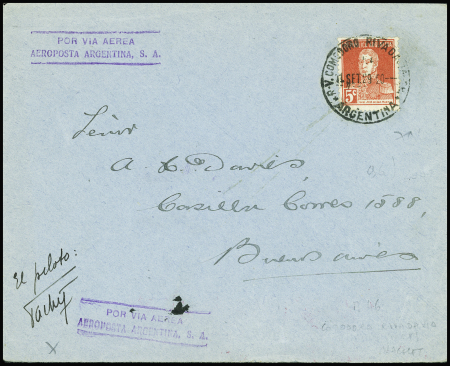 POR VIA AEREA
AEROPOSTA ARGENTINA, S. A.
COMODORO RIVADAVIA
SET
ARGENTINA
5c
Señor
A. C. Davies,
Casilla Correo 1888,
Buenos Aires
El piloto:
POR VIA AEREA
AEROPOSTA ARGENTINA, S. A.
X